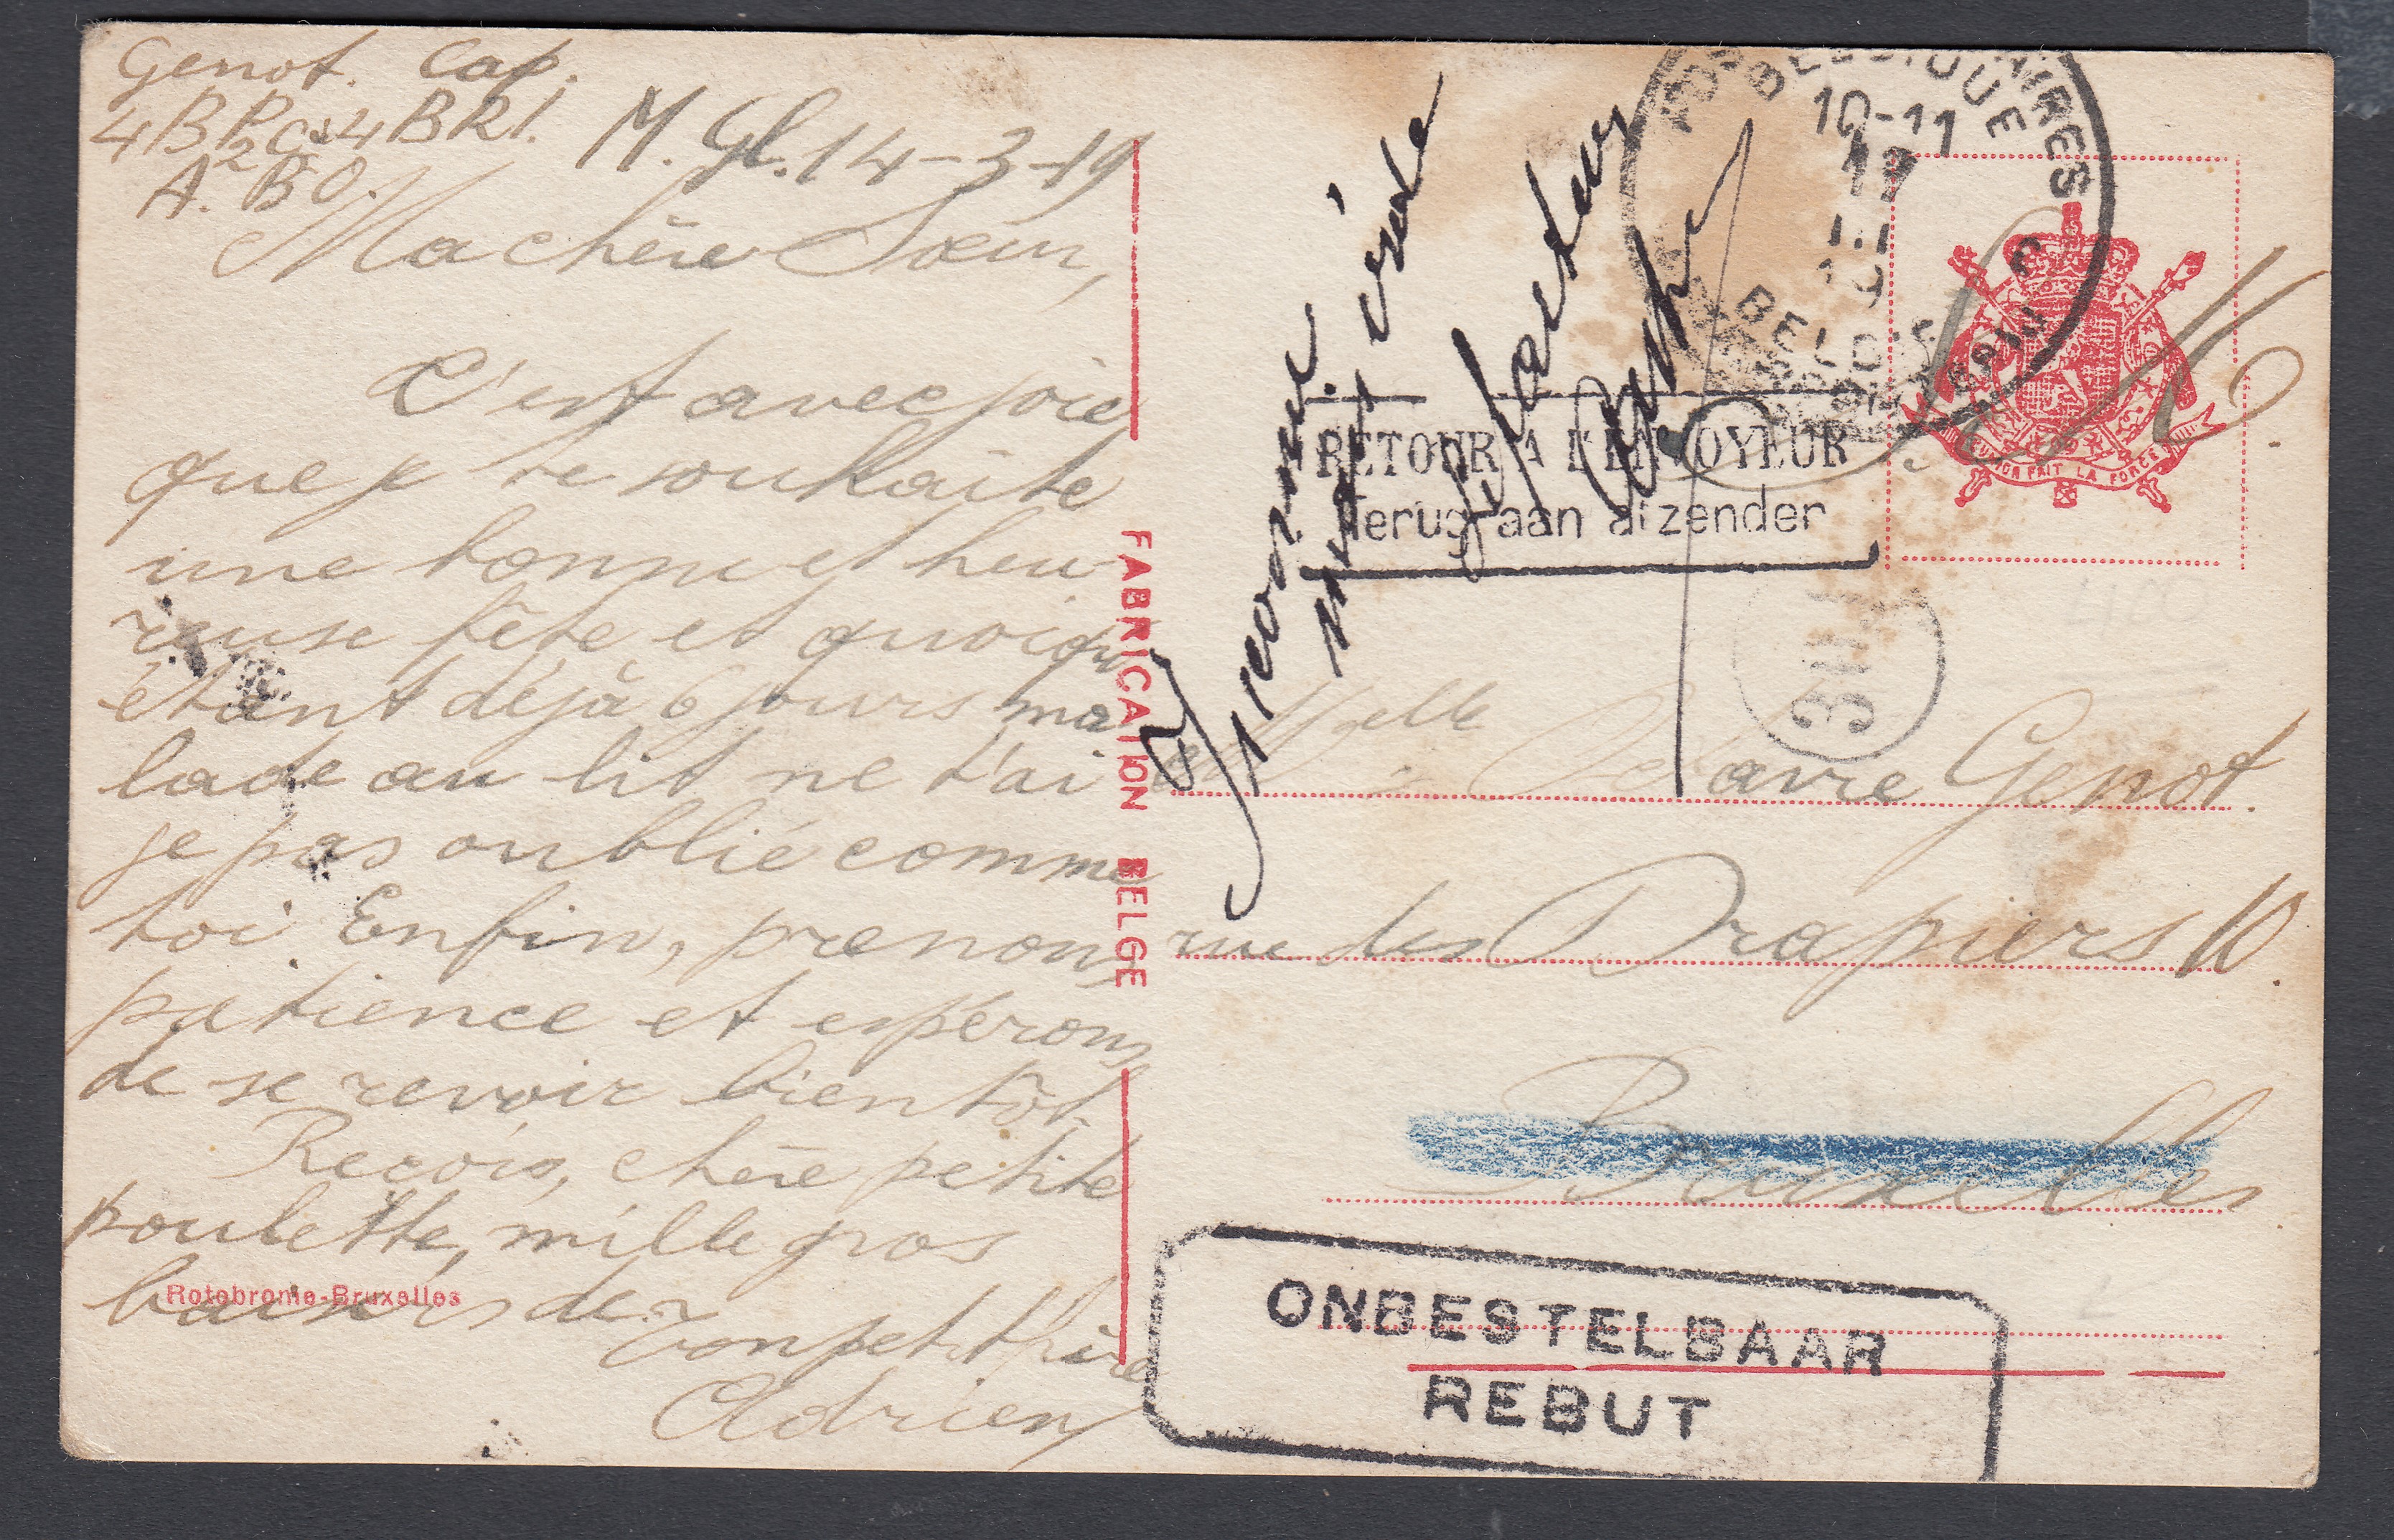 Genot. Cap.
4 BP 2 Cie 4 BRI.
A. B O.
M. Gl. 14-3-19
Ma chère Sœur,
C'est avec joie
que je te souhaite
une bonne et heu
reuse fête et quoiqu
étant déjà 6 jours ma
lade au lit ne t'ai
je pas oublié comme
toi. Enfin, prenons
patience et espérons
de se revoir bientôt.
Reçois, chère petite
poulette, mille gros
baisers de
Ton petit frère
Adrien
Rotobrome-Bruxelles
FABRICATION BELGE
BELGIQUE
10-11
BELGIË
S. M.
L'UNION FAIT LA FORCE
RETOUR A L'ENVOYEUR
Terug aan afzender
Inconnu
facteur
Melle
Genot.
rue des Drapiers 10.
Bruxelles
ONBESTELBAAR
REBUT